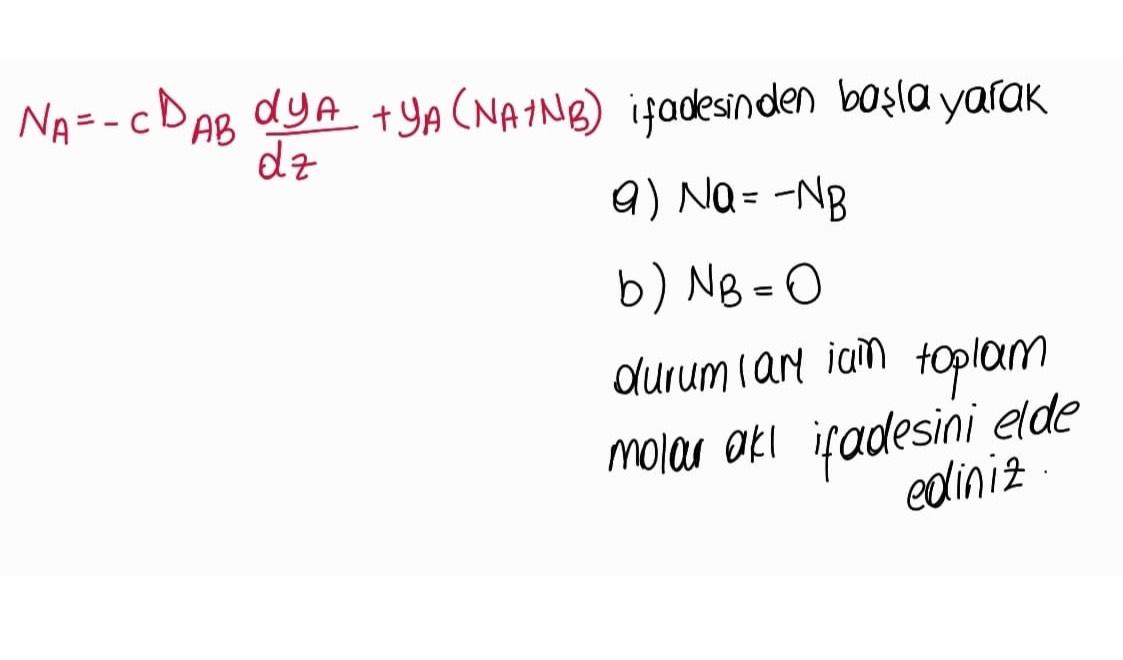 NA = - c DAB dyA/dz + yA (NA+NB) ifadesinden başlayarak
a) Na = -NB
b) NB = 0
durumları için toplam
molar akı ifadesini elde
ediniz.